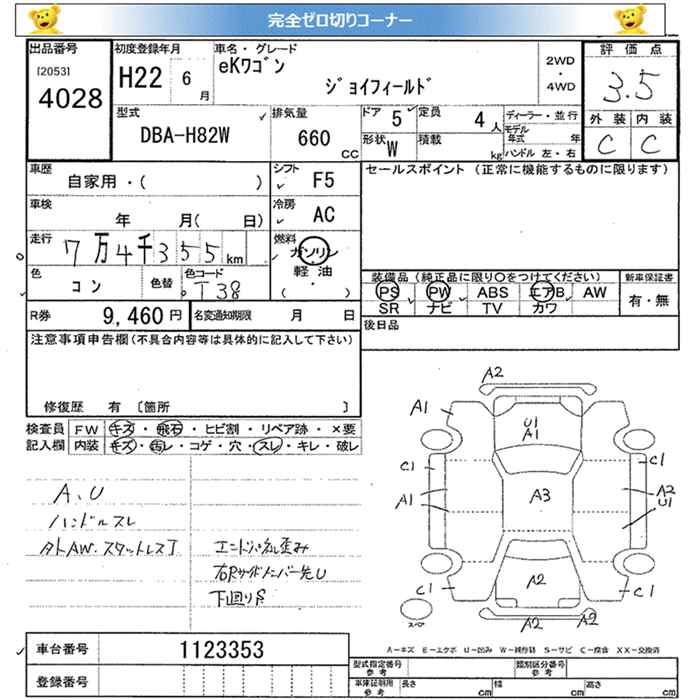 完全ゼロ切りコーナー
出品番号
[2053]
4028
初度登録年月
H22 6 月
車名・グレード
eKワゴン
ジョイフィールド
2WD
・
4WD
評価点
3.5
外装 内装
C C
型式
DBA-H82W
排気量
660 CC
ドア 5
定員 4 人
形状 W
積載 kg
ディーラー・並行
モデル年式 年
ハンドル 左・右
車歴
自家用・( )
シフト F5
車検
年 月( 日)
冷房 AC
走行
7万4千355km
燃料
ガソリン
軽油
( ・ )
色
コン
色替
色コード
T38
R券 9,460円
名変通知期限 月 日
セールスポイント (正常に機能するものに限ります)
装備品 (純正品に限り○をつけてください)
PS PW ABS エアB AW
SR ナビ TV カワ
新車保証書
有・無
後日品
注意事項申告欄 (不具合内容等は具体的に記入して下さい)
修復歴 有 [箇所 ]
検査員記入欄
FW キズ・飛石・ヒビ割・リペア跡・×要
内装 キズ・汚レ・コゲ・穴・スレ・キレ・破レ
A、U
ハンドルスレ
外AW.スタットレス
エンドパネル歪み
右Rサイドメンバー先U
下廻りS
A2
A1
U1
A1
C1
C1
A1
A3
A2
U1
C1
A2
C1
A2
A2
スペア
A-キズ E-エクボ U-凹み W-補修跡 S-サビ C-腐食 XX-交換済
車台番号 1123353
登録番号
型式指定番号 参考
類別区分番号 参考
車庫証明用 参考
長さ cm
幅 cm
高さ cm